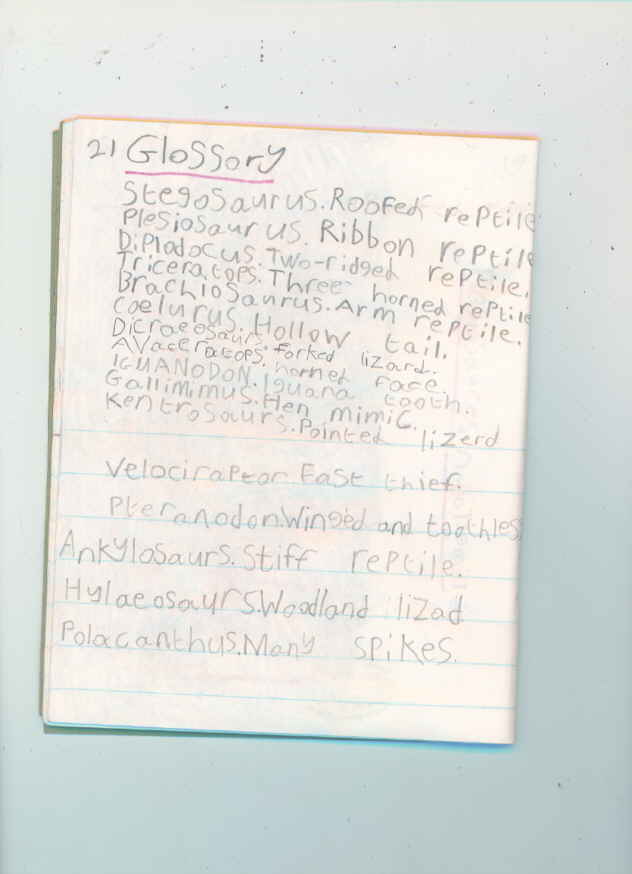 21 Glossory
Stegosaurus. Roofed reptile
Plesiosaurus. Ribbon reptile
Diplodocus. Two-ridged reptile.
Triceratops. Three horned reptile
Brachiosaurus. Arm reptile.
Coelurus. Hollow tail.
Dicraeosaurs. forked lizard.
AVaceratops. horned face.
IGUANODON. Iguana tooth.
Gallimimus. Hen mimic.
Kentrosaurs. Pointed lizerd
Velociraptor. Fast thief.
Pteranodon. Winged and toothless
Ankylosaurs. Stiff reptile.
Hylaeosaurs. Woodland lizad
Polacanthus. Many spikes.